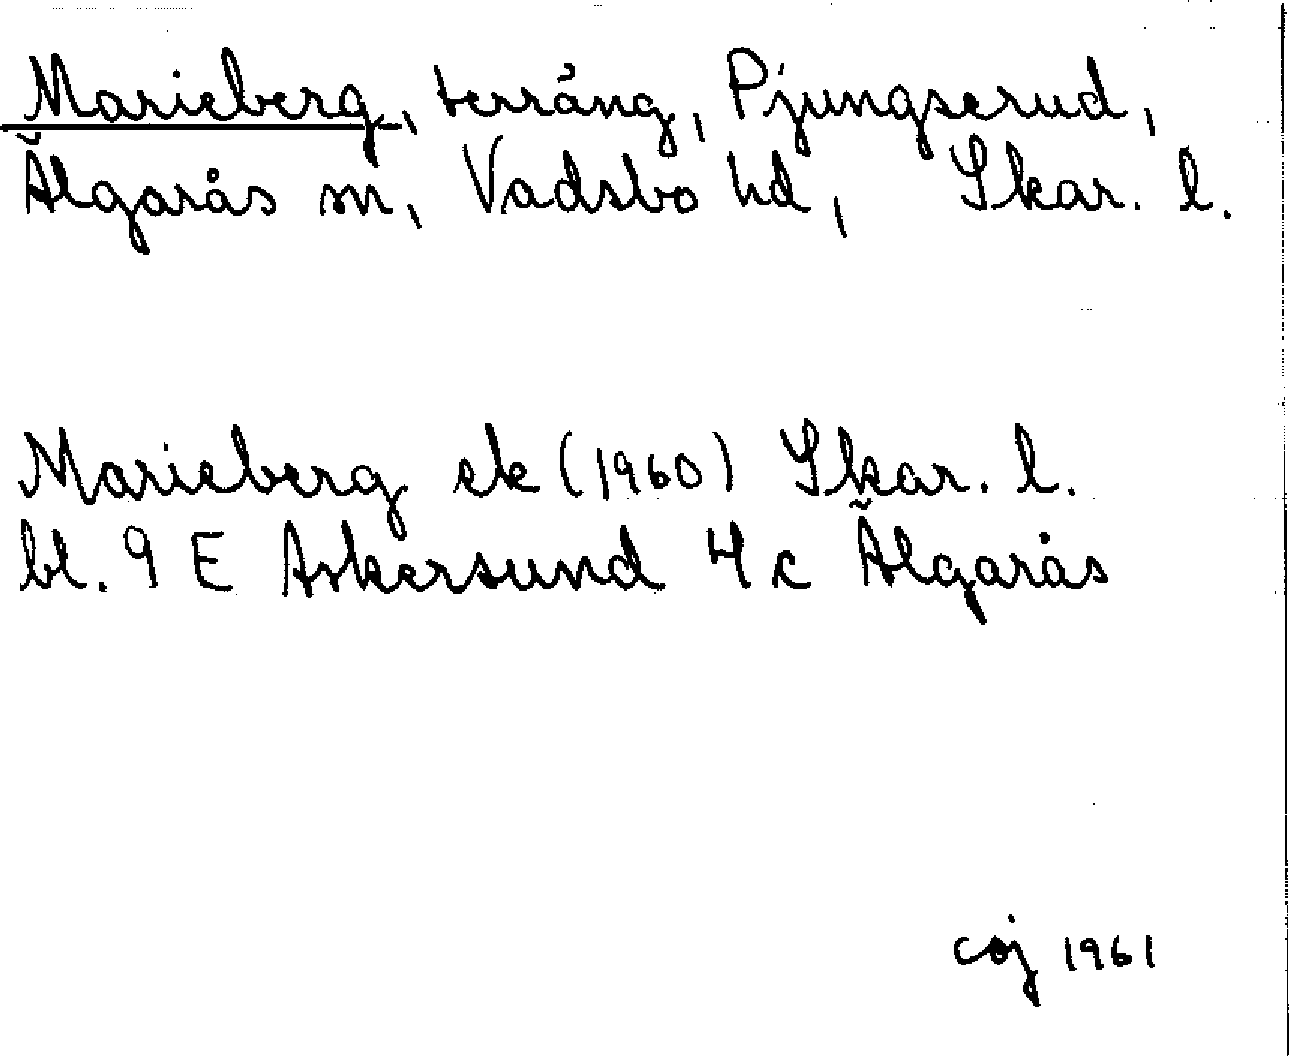 Marieberg, terräng, Pjungserud,
Älgarås sn, Vadsbo hd, Skar. l.
Marieberg ek (1960) Skar. l.
bl. 9 E Askersund 4 c Älgarås
coj 1961